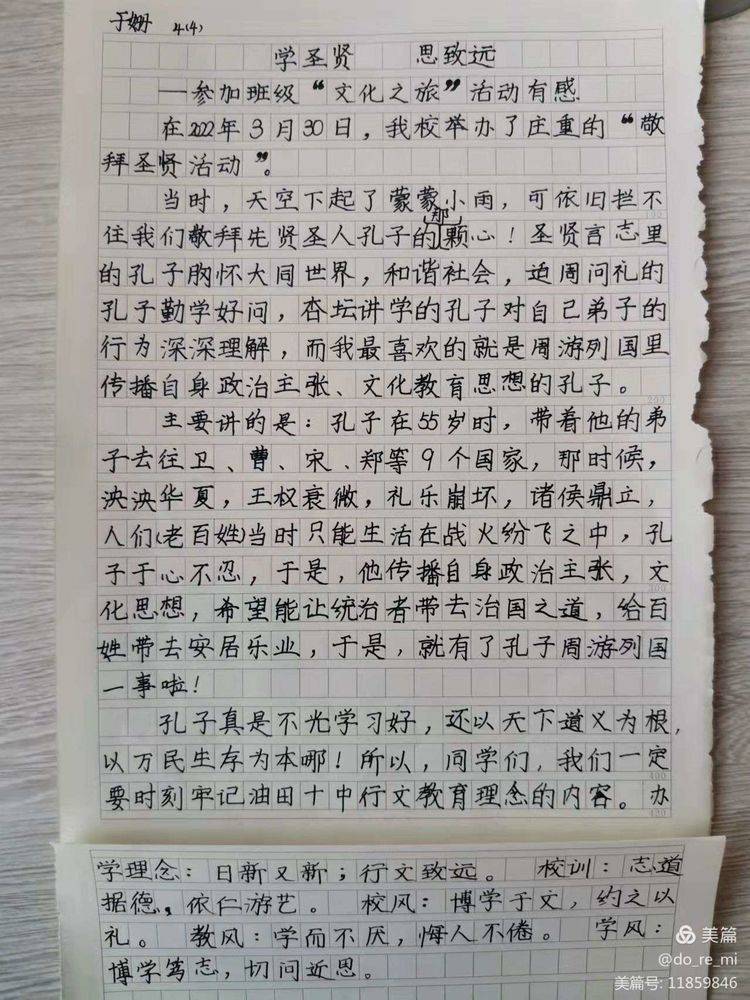 于姗 4(4)
学圣贤 思致远
—参加班级“文化之旅”活动有感
在2022年3月30日，我校举办了庄重的“敬
拜圣贤活动”。
当时，天空下起了蒙蒙小雨，可依旧拦不
住我们敬拜先贤圣人孔子的那颗心！圣贤言志里
的孔子胸怀大同世界，和谐社会，适周问礼的
孔子勤学好问，杏坛讲学的孔子对自己弟子的
行为深深理解，而我最喜欢的就是周游列国里
传播自身政治主张、文化教育思想的孔子。
主要讲的是：孔子在55岁时，带着他的弟
子去往卫、曹、宋、郑等9个国家，那时候，
泱泱华夏，王权衰微，礼乐崩坏，诸侯鼎立，
人们(老百姓)当时只能生活在战火纷飞之中，孔
子于心不忍，于是，他传播自身政治主张，文
化思想，希望能让统治者带去治国之道，给百
姓带去安居乐业，于是，就有了孔子周游列国
一事啦！
孔子真是不光学习好，还以天下道义为根，
以万民生存为本哪！所以，同学们，我们一定
要时刻牢记油田十中行文教育理念的内容。办
学理念：日新又新；行文致远。 校训：志道
据德，依仁游艺。 校风：博学于文，约之以
礼。 教风：学而不厌，悔人不倦。 学风：
博学笃志，切问近思。
美篇
@do_re_mi
美篇号: 11859846